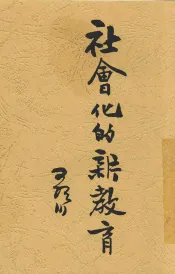 社會化的新教育